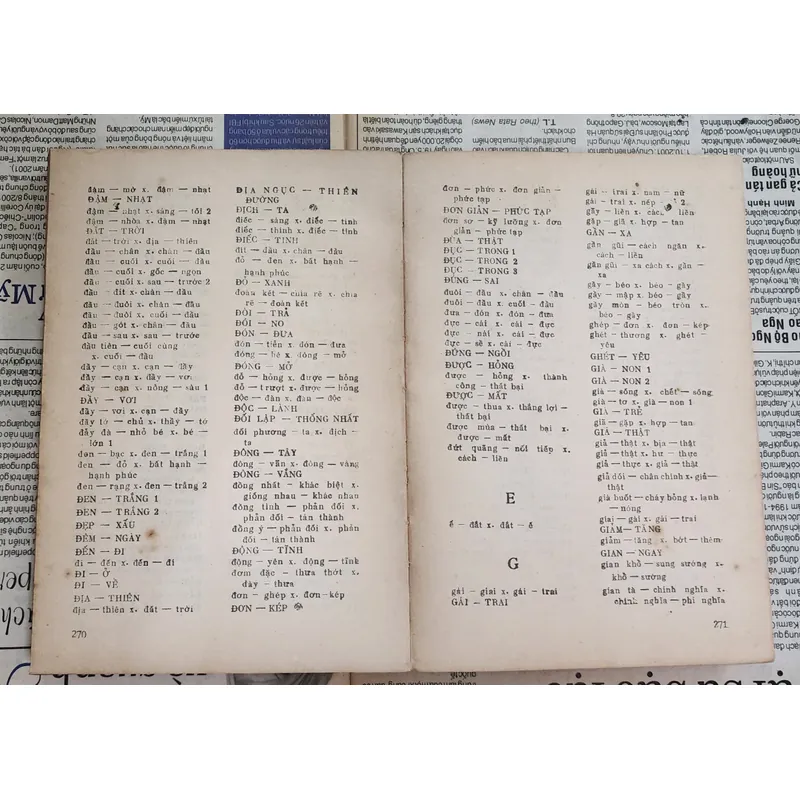 đậm — mờ x. đậm — nhạt
ĐẬM — NHẠT
đậm — nhạt x. sáng — tối 2
đậm — nhòa x. đậm — nhạt
ĐẤT — TRỜI
đất — trời x. địa — thiên
đầu — chân x. chân — đầu
đầu — cuối x. cuối — đầu
đầu — cuối x. gốc — ngọn
đầu — cuối x. sau — trước 2
đầu — đít x. chân — đầu
đầu — đuôi x. chân — đầu
đầu — đuôi x. cuối — đầu
đầu — gót x. chân — đầu
đầu — sau x. sau — trước
đầu tiên — cuối cùng
x. cuối — đầu
đầy — cạn x. cạn — đầy
đầy — cạn x. đầy — vơi
đầy — cạn x. nông — sâu 1
ĐẦY — VƠI
đầy — vơi x. cạn — đầy
đầy tớ — chủ x. thầy — tớ
đẫy đà — nhỏ bé x. bé —
lớn 1
đen — bạc x. đen — trắng 1
đen — đỏ x. bất hạnh —
hạnh phúc
đen — rạng x. đen — trắng 2
ĐEN — TRẮNG 1
ĐEN — TRẮNG 2
ĐẸP — XẤU
ĐÊM — NGÀY
ĐẾN — ĐI
đi — đến x. đến — đi
ĐI — Ở
ĐI — VỀ
ĐỊA — THIÊN
địa — thiên x. đất — trời
270
ĐỊA NGỤC — THIÊN
ĐƯỜNG
ĐỊCH — TA
điếc — sáng x. điếc — tinh
điếc — thính x. điếc — tinh
ĐIẾC — TINH
đít — đầu x. chân — đầu
đỏ — đen x. bất hạnh —
hạnh phúc
ĐỎ — XANH
đoàn kết — chia rẽ x. chia
rẽ — đoàn kết
ĐÒI — TRẢ
ĐÓI — NO
ĐÓN — ĐƯA
đón — tiễn x. đón — đưa
đóng — hé x. đóng — mở
ĐÓNG — MỞ
đỗ — hỏng x. được — hỏng
đỗ — trượt x. được — hỏng
độc — đàn x. đàn — độc
ĐỘC — LÀNH
ĐỐI LẬP — THỐNG NHẤT
đối phương — ta x. địch —
ta
ĐÔNG — TÂY
đông — vãn x. đông — vắng
ĐÔNG — VẮNG
đồng nhất — khác biệt x.
giống nhau — khác nhau
đồng tình — phản đối x.
phản đối — tán thành
đồng ý — phản đối x. phản
đối — tán thành
ĐỘNG — TĨNH
động — yên x. động — tĩnh
đơm đặc — thưa thớt x.
dày — thưa
đơn — ghép x. đơn — kép
ĐƠN — KÉP
đơn — phức x. đơn giản —
phức tạp
ĐƠN GIẢN — PHỨC TẠP
đơn sơ — kỹ lưỡng x. đơn
giản — phức tạp
ĐÙA — THẬT
ĐỤC — TRONG 1
ĐỤC — TRONG 2
ĐỤC — TRONG 3
ĐÚNG — SAI
đuôi — đầu x. chân — đầu
đuôi — đầu x. cuối — đầu
đưa — đón x. đón — đưa
đực — cái x. cái — đực
đực — nái x. cái — đực
đực — sề x. cái — đực
ĐỨNG — NGỒI
ĐƯỢC — HỎNG
được — hỏng x. thành
công — thất bại
ĐƯỢC — MẤT
được — thua x. thắng lợi —
thất bại
được mùa — thất bại x.
được — mất
đứt quãng — nối tiếp x.
cách — liền
E
ế — đắt x. đắt — ế
G
gái — giai x. gái — trai
GÁI — TRAI
gái — trai x. nam — nữ
gái — trai x. nếp 2
gãy — liền x. cách — liền
gặp — giã x. hợp — tan
GẦN — XA
gần gũi — cách ngăn x.
cách — liền
gần gũi — xa cách x. gần —
xa
gầy — béo x. béo — gầy
gầy — mập x. béo — gầy
gầy mòn — béo tròn x.
béo — gầy
ghép — đơn x. đơn — kép
ghét — thương x. ghét —
yêu
GHÉT — YÊU
GIÀ — NON 1
GIÀ — NON 2
già — sống x. chết — sống
già — tơ x. già — non 1
GIÀ — TRẺ
giã — gặp x. hợp — tan
GIẢ — THẬT
giả — thật x. bịa — thật
giả — thật x. hư — thực
giả — thực x. giả — thật
giả dối — chân chính x. giả —
thật
giá buốt — cháy bỏng x. lạnh
— nóng
giai — gái x. gái — trai
GIẢM — TĂNG
giảm — tăng x. bớt — thêm
GIAN — NGAY
gian khổ — sung sướng x.
khổ — sướng
gian tà — chính nghĩa x.
chính nghĩa — phi nghĩa
271